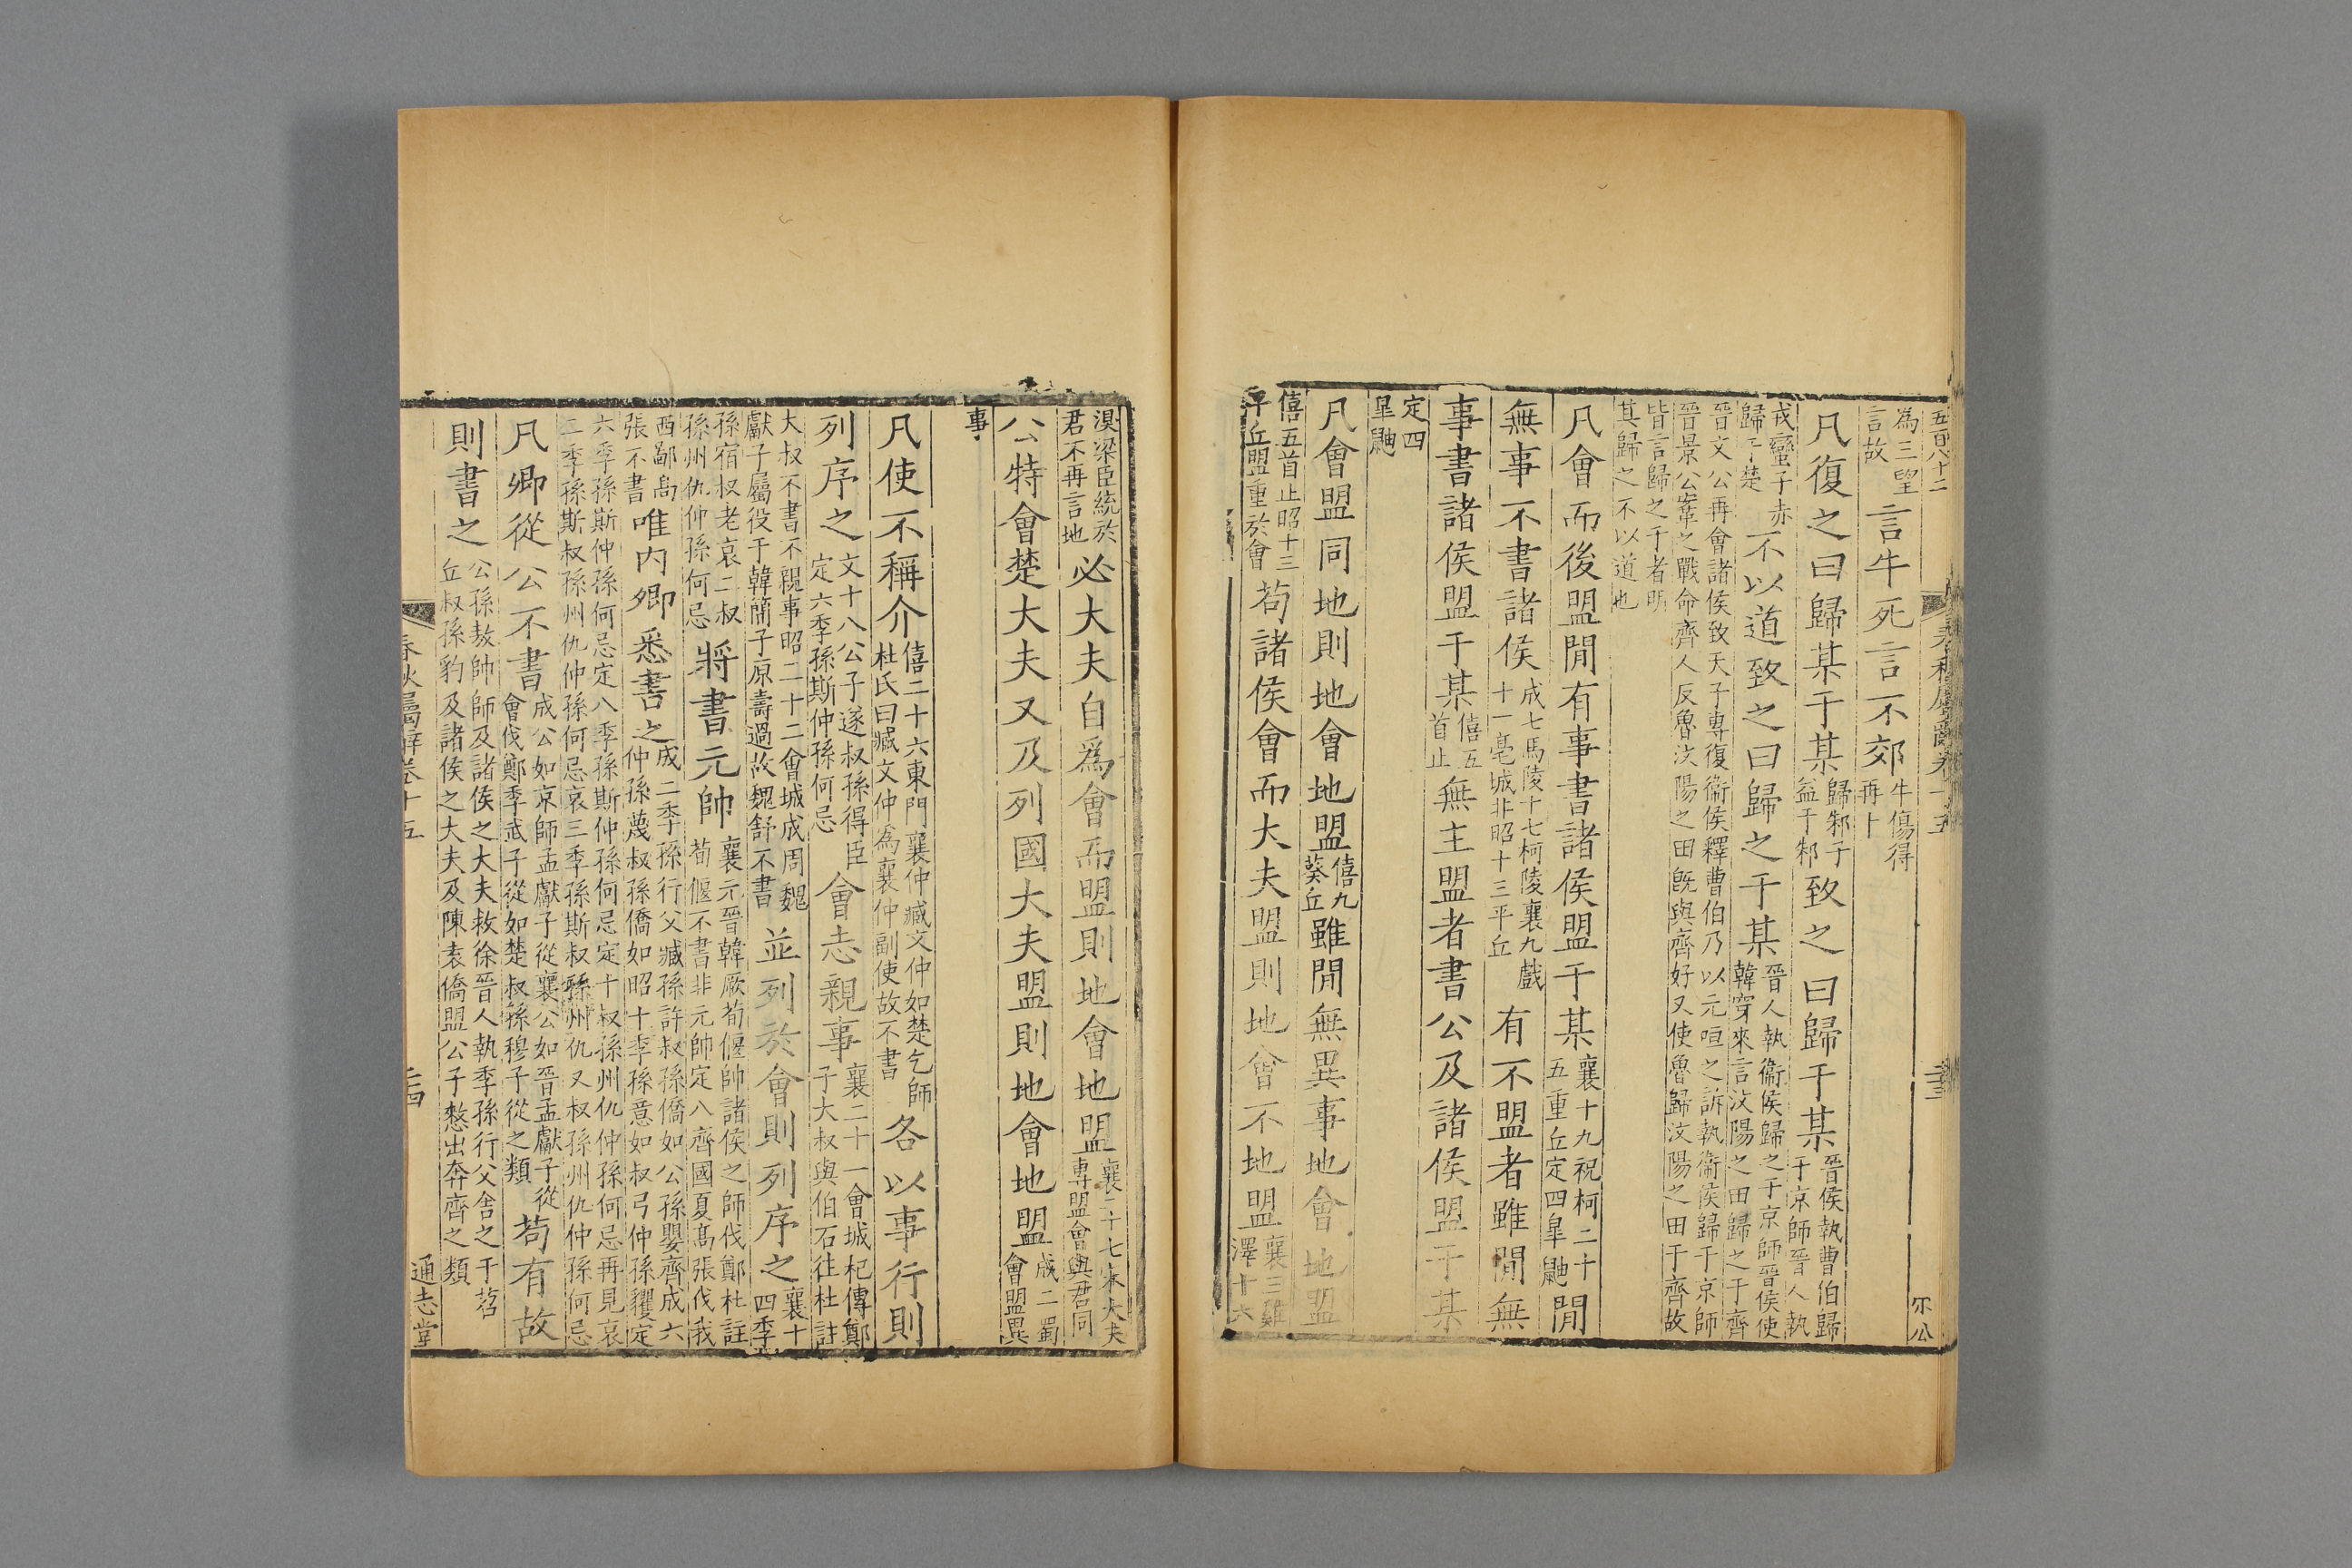 五百八十二
春秋屬辭卷十五
為三望言故言牛死言不郊牛傷得再卜
凡復之曰歸某于某歸邾子益于邾致之曰歸于某晉侯執曹伯歸于京師晉人執
戎蠻子赤歸于楚不以道致之曰歸之于某晉人執衞侯歸之于京師晉侯使韓穿來言汶陽之田歸之于齊
晉文公再會諸侯致天子專復衞侯釋曹伯乃以元咺之訴執衞侯歸于京師晉景公鞌之戰命齊人反魯汶陽之田旣與齊好又使魯歸汶陽之田于齊故
皆言歸之于者明其歸之不以道也
凡會而後盟閒有事書諸侯盟于某襄十九祝柯二十五重丘定四皐鼬閒
無事不書諸侯成七馬陵十七柯陵襄九戲十一亳城非昭十三平丘有不盟者雖閒無
事書諸侯盟于某僖五首止無主盟者書公及諸侯盟于某
定四皐鼬
凡會盟同地則地會地盟僖九葵丘雖閒無異事地會地盟
僖五首止昭十三平丘盟重於會苟諸侯會而大夫盟則地會不地盟襄三雞澤十六
湨梁臣統於君不再言地必大夫自為會而盟則地會地盟襄二十七宋大夫專盟會與君同
公特會楚大夫又及列國大夫盟則地會地盟成二蜀會盟異
事
凡使不稱介僖二十六東門襄仲臧文仲如楚乞師杜氏曰臧文仲為襄仲副使故不書各以事行則
列序之文十八公子遂叔孫得臣定六季孫斯仲孫何忌會志親事襄二十一會城杞傳鄭子大叔與伯石往杜註
大叔不書不親事昭二十二會城成周魏獻子屬役于韓簡子原壽過故魏舒不書並列於會則列序之襄十四季
孫宿叔老哀二叔孫州仇仲孫何忌將書元帥襄元晉韓厥荀偃帥諸侯之師伐鄭杜註荀偃不書非元帥定八齊國夏高張伐我
西鄙高張不書唯內卿悉書之成二季孫行父臧孫許叔孫僑如公孫嬰齊成六仲孫蔑叔孫僑如昭十季孫意如叔弓仲孫貜定
六季孫斯仲孫何忌定八季孫斯仲孫何忌定十叔孫州仇仲孫何忌再見哀二季孫斯叔孫州仇仲孫何忌哀三季孫斯叔孫州仇又叔孫州仇仲孫何忌
凡卿從公不書成公如京師孟獻子從襄公如晉孟獻子從會伐鄭季武子從如楚叔孫穆子從之類苟有故
則書之公孫敖帥師及諸侯之大夫救徐晉人執季孫行父舍之于苕丘叔孫豹及諸侯之大夫及陳袁僑盟公子憖出奔齊之類
春秋屬辭卷十五
通志堂